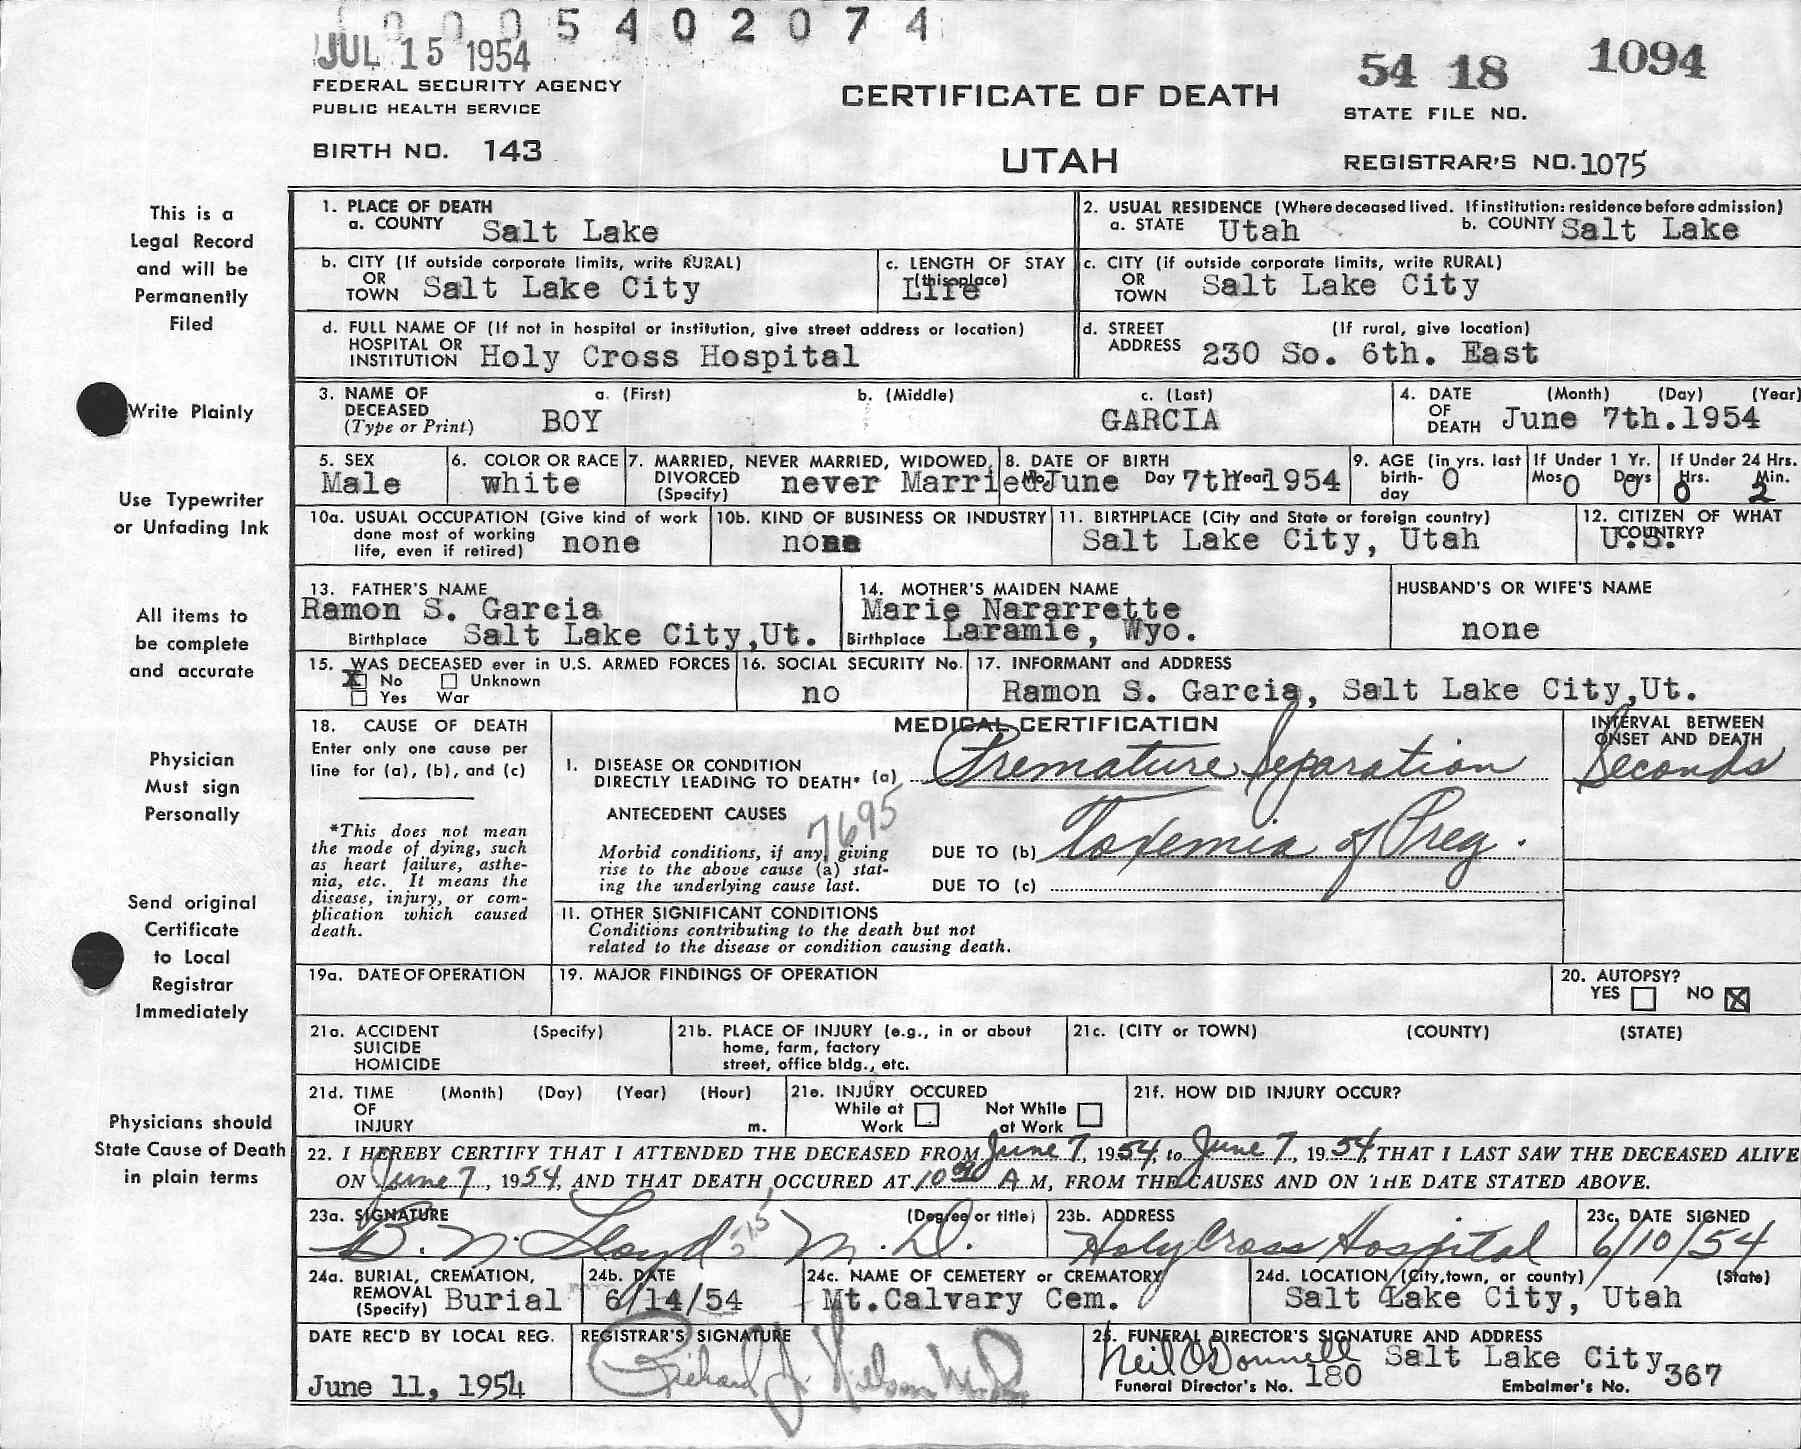 0 0 0 5 4 0 2 0 7 4
JUL 15 1954
54 18 1094
FEDERAL SECURITY AGENCY
PUBLIC HEALTH SERVICE
CERTIFICATE OF DEATH
STATE FILE NO.
BIRTH NO. 143
UTAH
REGISTRAR'S NO. 1075
This is a
Legal Record
and will be
Permanently
Filed
Write Plainly
Use Typewriter
or Unfading Ink
All items to
be complete
and accurate
Physician
Must sign
Personally
Send original
Certificate
to Local
Registrar
Immediately
Physicians should
State Cause of Death
in plain terms
1. PLACE OF DEATH
a. COUNTY Salt Lake
2. USUAL RESIDENCE (Where deceased lived. If institution: residence before admission)
a. STATE Utah b. COUNTY Salt Lake
b. CITY (If outside corporate limits, write RURAL)
OR
TOWN Salt Lake City
c. LENGTH OF STAY
(this place)
Life
c. CITY (if outside corporate limits, write RURAL)
OR
TOWN Salt Lake City
d. FULL NAME OF (If not in hospital or institution, give street address or location)
HOSPITAL OR
INSTITUTION Holy Cross Hospital
d. STREET (If rural, give location)
ADDRESS 230 So. 6th. East
3. NAME OF a. (First) b. (Middle) c. (Last)
DECEASED
(Type or Print) BOY GARCIA
4. DATE (Month) (Day) (Year)
OF
DEATH June 7th.1954
5. SEX
Male
6. COLOR OR RACE
white
7. MARRIED, NEVER MARRIED, WIDOWED,
DIVORCED
(Specify) never Married
8. DATE OF BIRTH
Mo June Day 7th Year 1954
9. AGE (in yrs. last
birth-
day 0
If Under 1 Yr.
Mos 0 Days 0
If Under 24 Hrs.
Hrs. 0 Min. 2
10a. USUAL OCCUPATION (Give kind of work
done most of working
life, even if retired) none
10b. KIND OF BUSINESS OR INDUSTRY
none
11. BIRTHPLACE (City and State or foreign country)
Salt Lake City, Utah
12. CITIZEN OF WHAT
COUNTRY?
U.S.
13. FATHER'S NAME
Ramon S. Garcia
Birthplace Salt Lake City,Ut.
14. MOTHER'S MAIDEN NAME
Marie Nararrette
Birthplace Laramie, Wyo.
HUSBAND'S OR WIFE'S NAME
none
15. WAS DECEASED ever in U.S. ARMED FORCES
X No Unknown
Yes War
16. SOCIAL SECURITY No.
no
17. INFORMANT and ADDRESS
Ramon S. Garcia, Salt Lake City,Ut.
18. CAUSE OF DEATH
Enter only one cause per
line for (a), (b), and (c)
*This does not mean
the mode of dying, such
as heart failure, asthe-
nia, etc. It means the
disease, injury, or com-
plication which caused
death.
MEDICAL CERTIFICATION
INTERVAL BETWEEN
ONSET AND DEATH
I. DISEASE OR CONDITION
DIRECTLY LEADING TO DEATH* (a) Premature Separation Seconds
ANTECEDENT CAUSES
7695
Morbid conditions, if any, giving
rise to the above cause (a) stat-
ing the underlying cause last.
DUE TO (b) Toxemia of Preg.
DUE TO (c)
II. OTHER SIGNIFICANT CONDITIONS
Conditions contributing to the death but not
related to the disease or condition causing death.
19a. DATE OF OPERATION
19. MAJOR FINDINGS OF OPERATION
20. AUTOPSY?
YES NO X
21a. ACCIDENT (Specify)
SUICIDE
HOMICIDE
21b. PLACE OF INJURY (e.g., in or about
home, farm, factory
street, office bldg., etc.
21c. (CITY or TOWN) (COUNTY) (STATE)
21d. TIME (Month) (Day) (Year) (Hour)
OF
INJURY m.
21e. INJURY OCCURED
While at Not While
Work at Work
21f. HOW DID INJURY OCCUR?
22. I HEREBY CERTIFY THAT I ATTENDED THE DECEASED FROM June 7, 1954, to June 7, 1954, THAT I LAST SAW THE DECEASED ALIVE
ON June 7, 1954, AND THAT DEATH OCCURED AT 10 A M, FROM THE CAUSES AND ON THE DATE STATED ABOVE.
23a. SIGNATURE (Degree or title)
B. N. Lloyd M.D.
23b. ADDRESS
Holy Cross Hospital
23c. DATE SIGNED
6/10/54
24a. BURIAL, CREMATION,
REMOVAL
(Specify) Burial
24b. DATE
6/14/54
24c. NAME OF CEMETERY or CREMATORY
Mt.Calvary Cem.
24d. LOCATION (City,town, or county) (State)
Salt Lake City, Utah
DATE REC'D BY LOCAL REG.
June 11, 1954
REGISTRAR'S SIGNATURE
Richard J. Nielson M.D.
25. FUNERAL DIRECTOR'S SIGNATURE AND ADDRESS
Neil O'Donnell Salt Lake City
Funeral Director's No. 180 Embalmer's No. 367